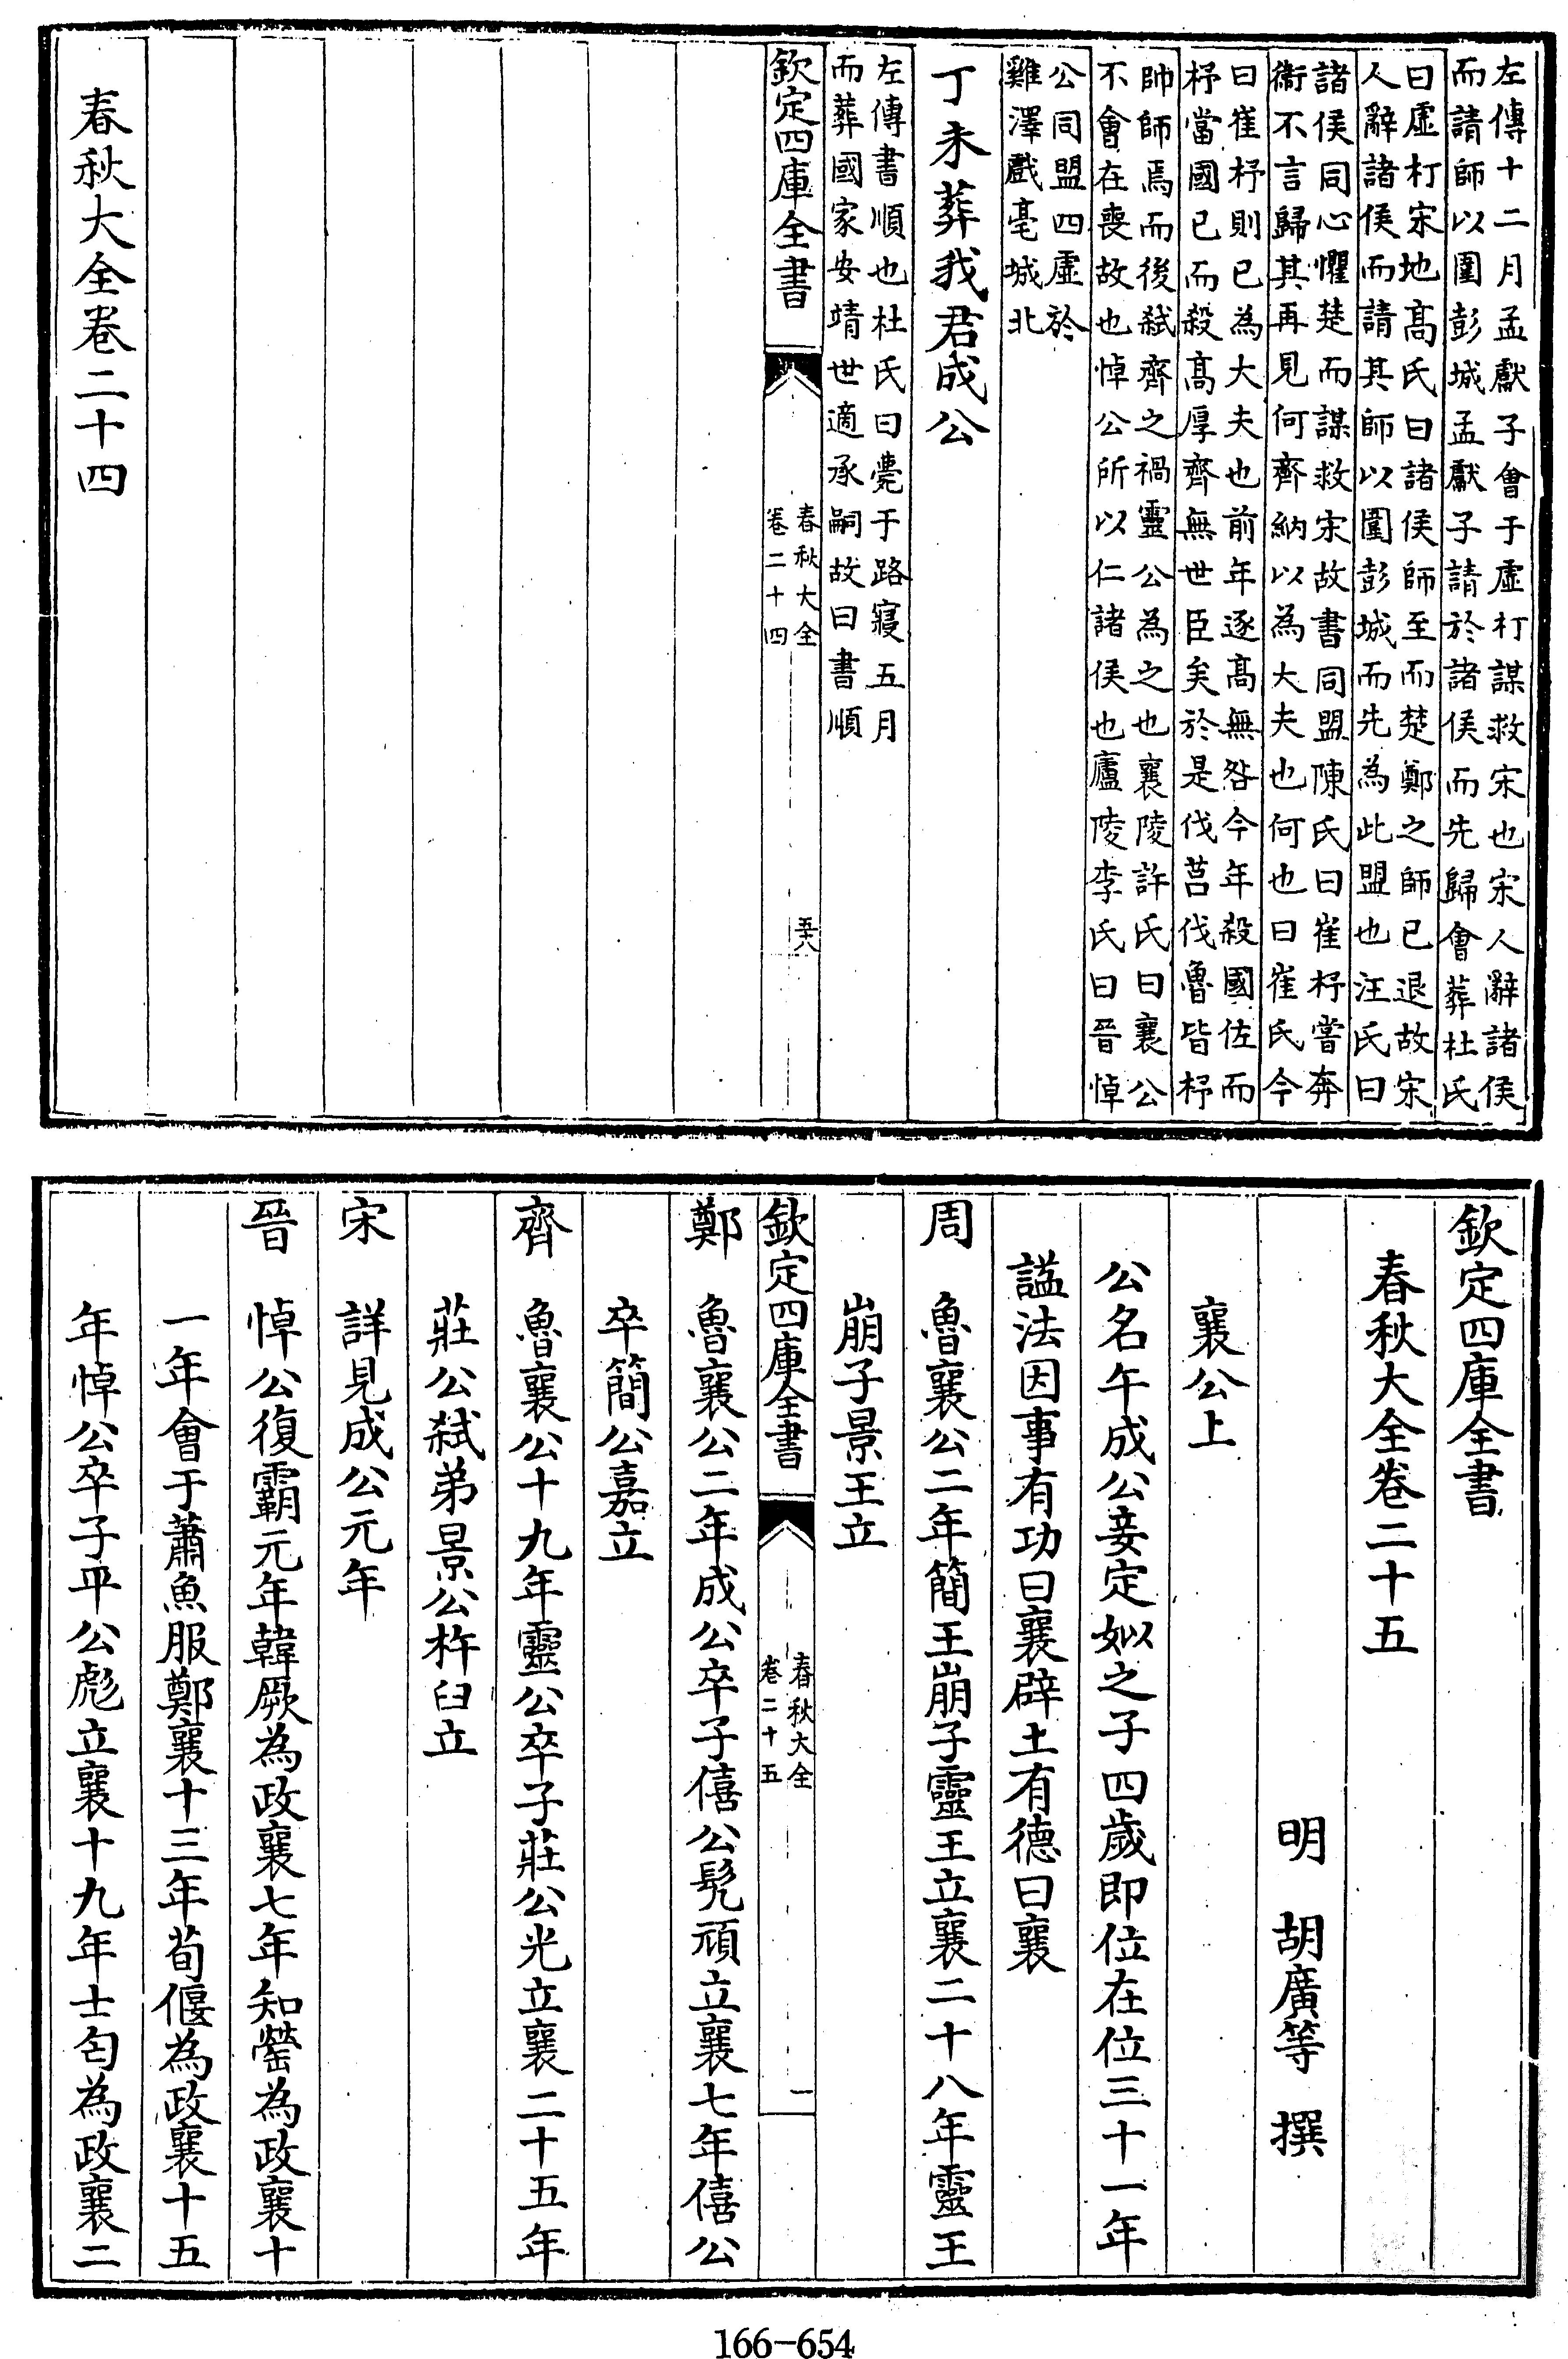 左傳十二月孟獻子會于虛朾謀救宋也宋人辭諸侯
而請師以圍彭城孟獻子請於諸侯而先歸會葬杜氏
曰虛朾宋地高氏曰諸侯師至而楚鄭之師已退故宋
人辭諸侯而請其師以圍彭城而先為此盟也汪氏曰
諸侯同心懼楚而謀救宋故書同盟陳氏曰崔杼嘗奔
衞不言歸其再見何齊納以為大夫也何也曰崔氏今
曰崔杼則已為大夫也前年逐高無咎今年殺國佐而
杼當國已而殺高厚齊無世臣矣於是伐莒伐魯皆杼
帥師焉而後弑齊之禍靈公為之也襄陵許氏曰襄公
不會在喪故也悼公所以仁諸侯也廬陵李氏曰晉悼
公同盟四虛於
雞澤戲亳城北
丁未葬我君成公
左傳書順也杜氏曰薨于路寢五月
而葬國家安靖世適承嗣故曰書順
欽定四庫全書
春秋大全
卷二十四
五八
春秋大全卷二十四
欽定四庫全書
春秋大全卷二十五
明 胡廣等 撰
襄公上
公名午成公妾定姒之子四歲即位在位三十一年
謚法因事有功曰襄辟土有德曰襄
周 魯襄公二年簡王崩子靈王立襄二十八年靈王
崩子景王立
欽定四庫全書
春秋大全
卷二十五
一
鄭 魯襄公二年成公卒子僖公髡頑立襄七年僖公
卒簡公嘉立
齊 魯襄公十九年靈公卒子莊公光立襄二十五年
莊公弑弟景公杵臼立
宋 詳見成公元年
晉 悼公復霸元年韓厥為政襄七年知罃為政襄十
一年會于蕭魚服鄭襄十三年荀偃為政襄十五
年悼公卒子平公彪立襄十九年士匄為政襄二
166-654